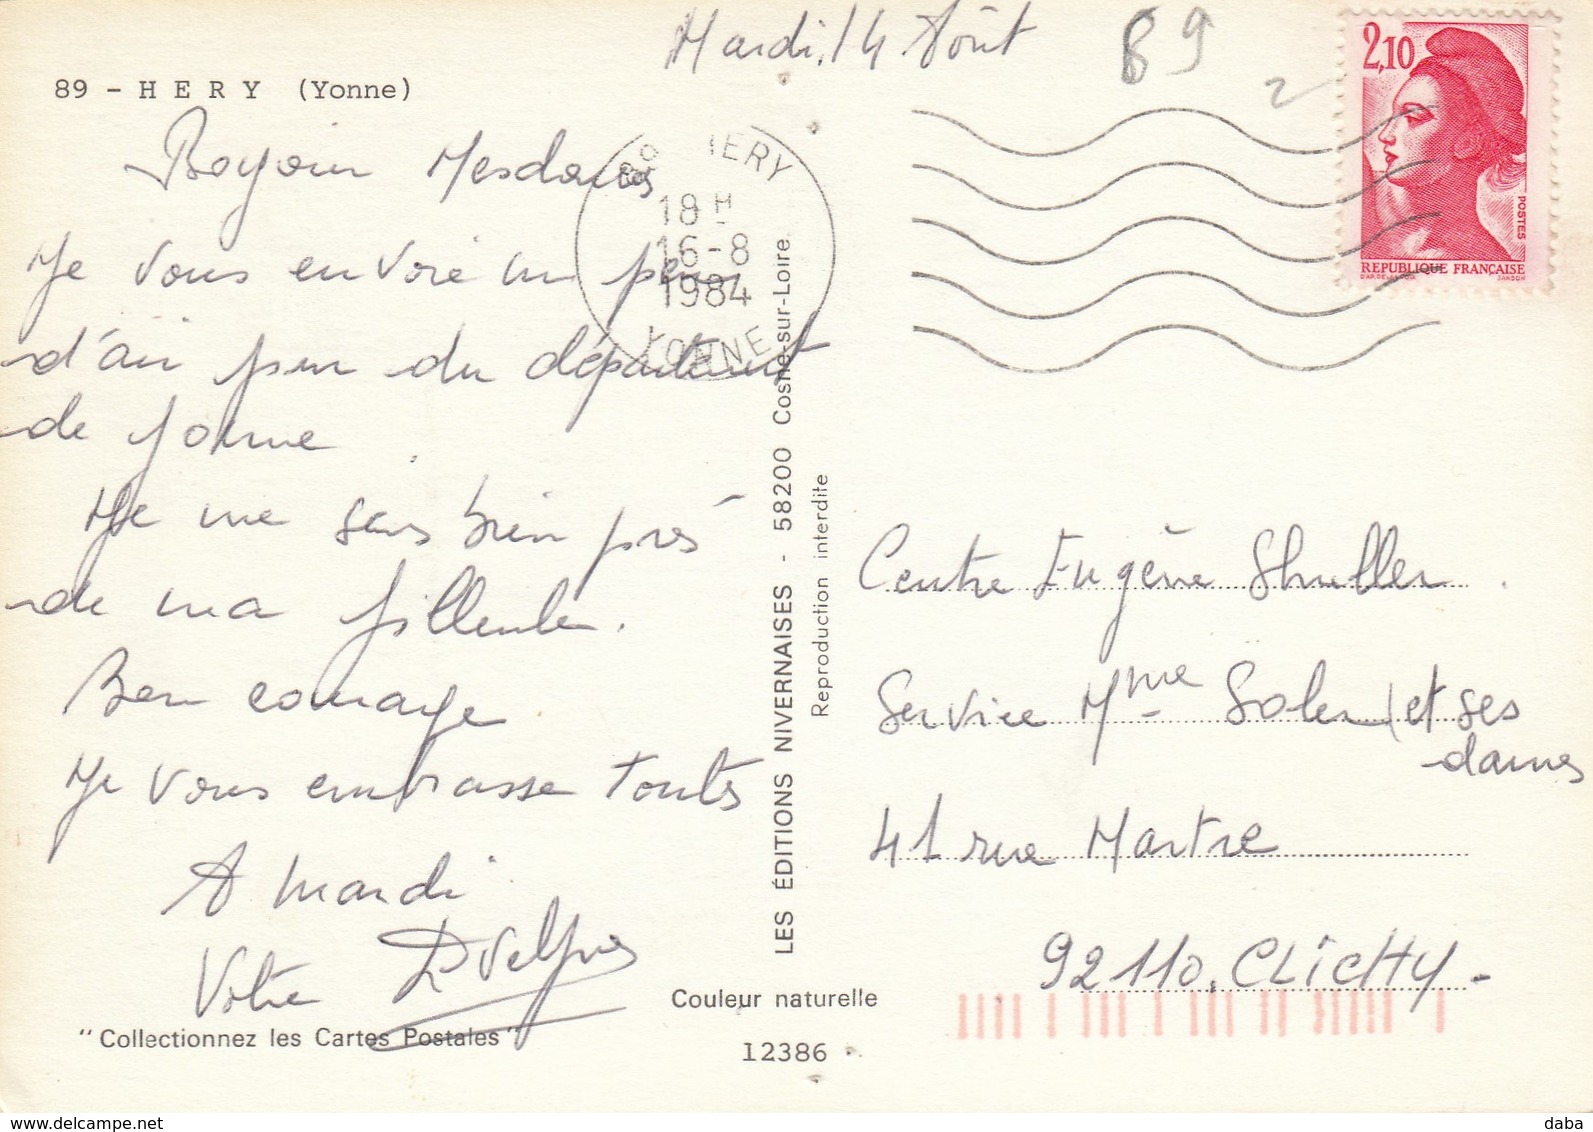 Mardi 14 Août
89
2,10
POSTES
REPUBLIQUE FRANÇAISE
89 - HERY (Yonne)
89 HERY
18 H
16-8
1984
YONNE
Bonjour Mesdames
Je vous envoie un peu
d'air pur du département
de Yonne.
Je me sens bien près
de ma filleule.
Bon courage
Je vous embrasse toutes
A mardi
Votre
"Collectionnez les Cartes Postales"
LES ÉDITIONS NIVERNAISES - 58200 Cosne-sur-Loire
Reproduction interdite
Couleur naturelle
12386
Centre Eugène Shuller
Service Mme Soler (et ses
dames
41 rue Martre
92110, CLICHY -
daba
www.delcampe.net